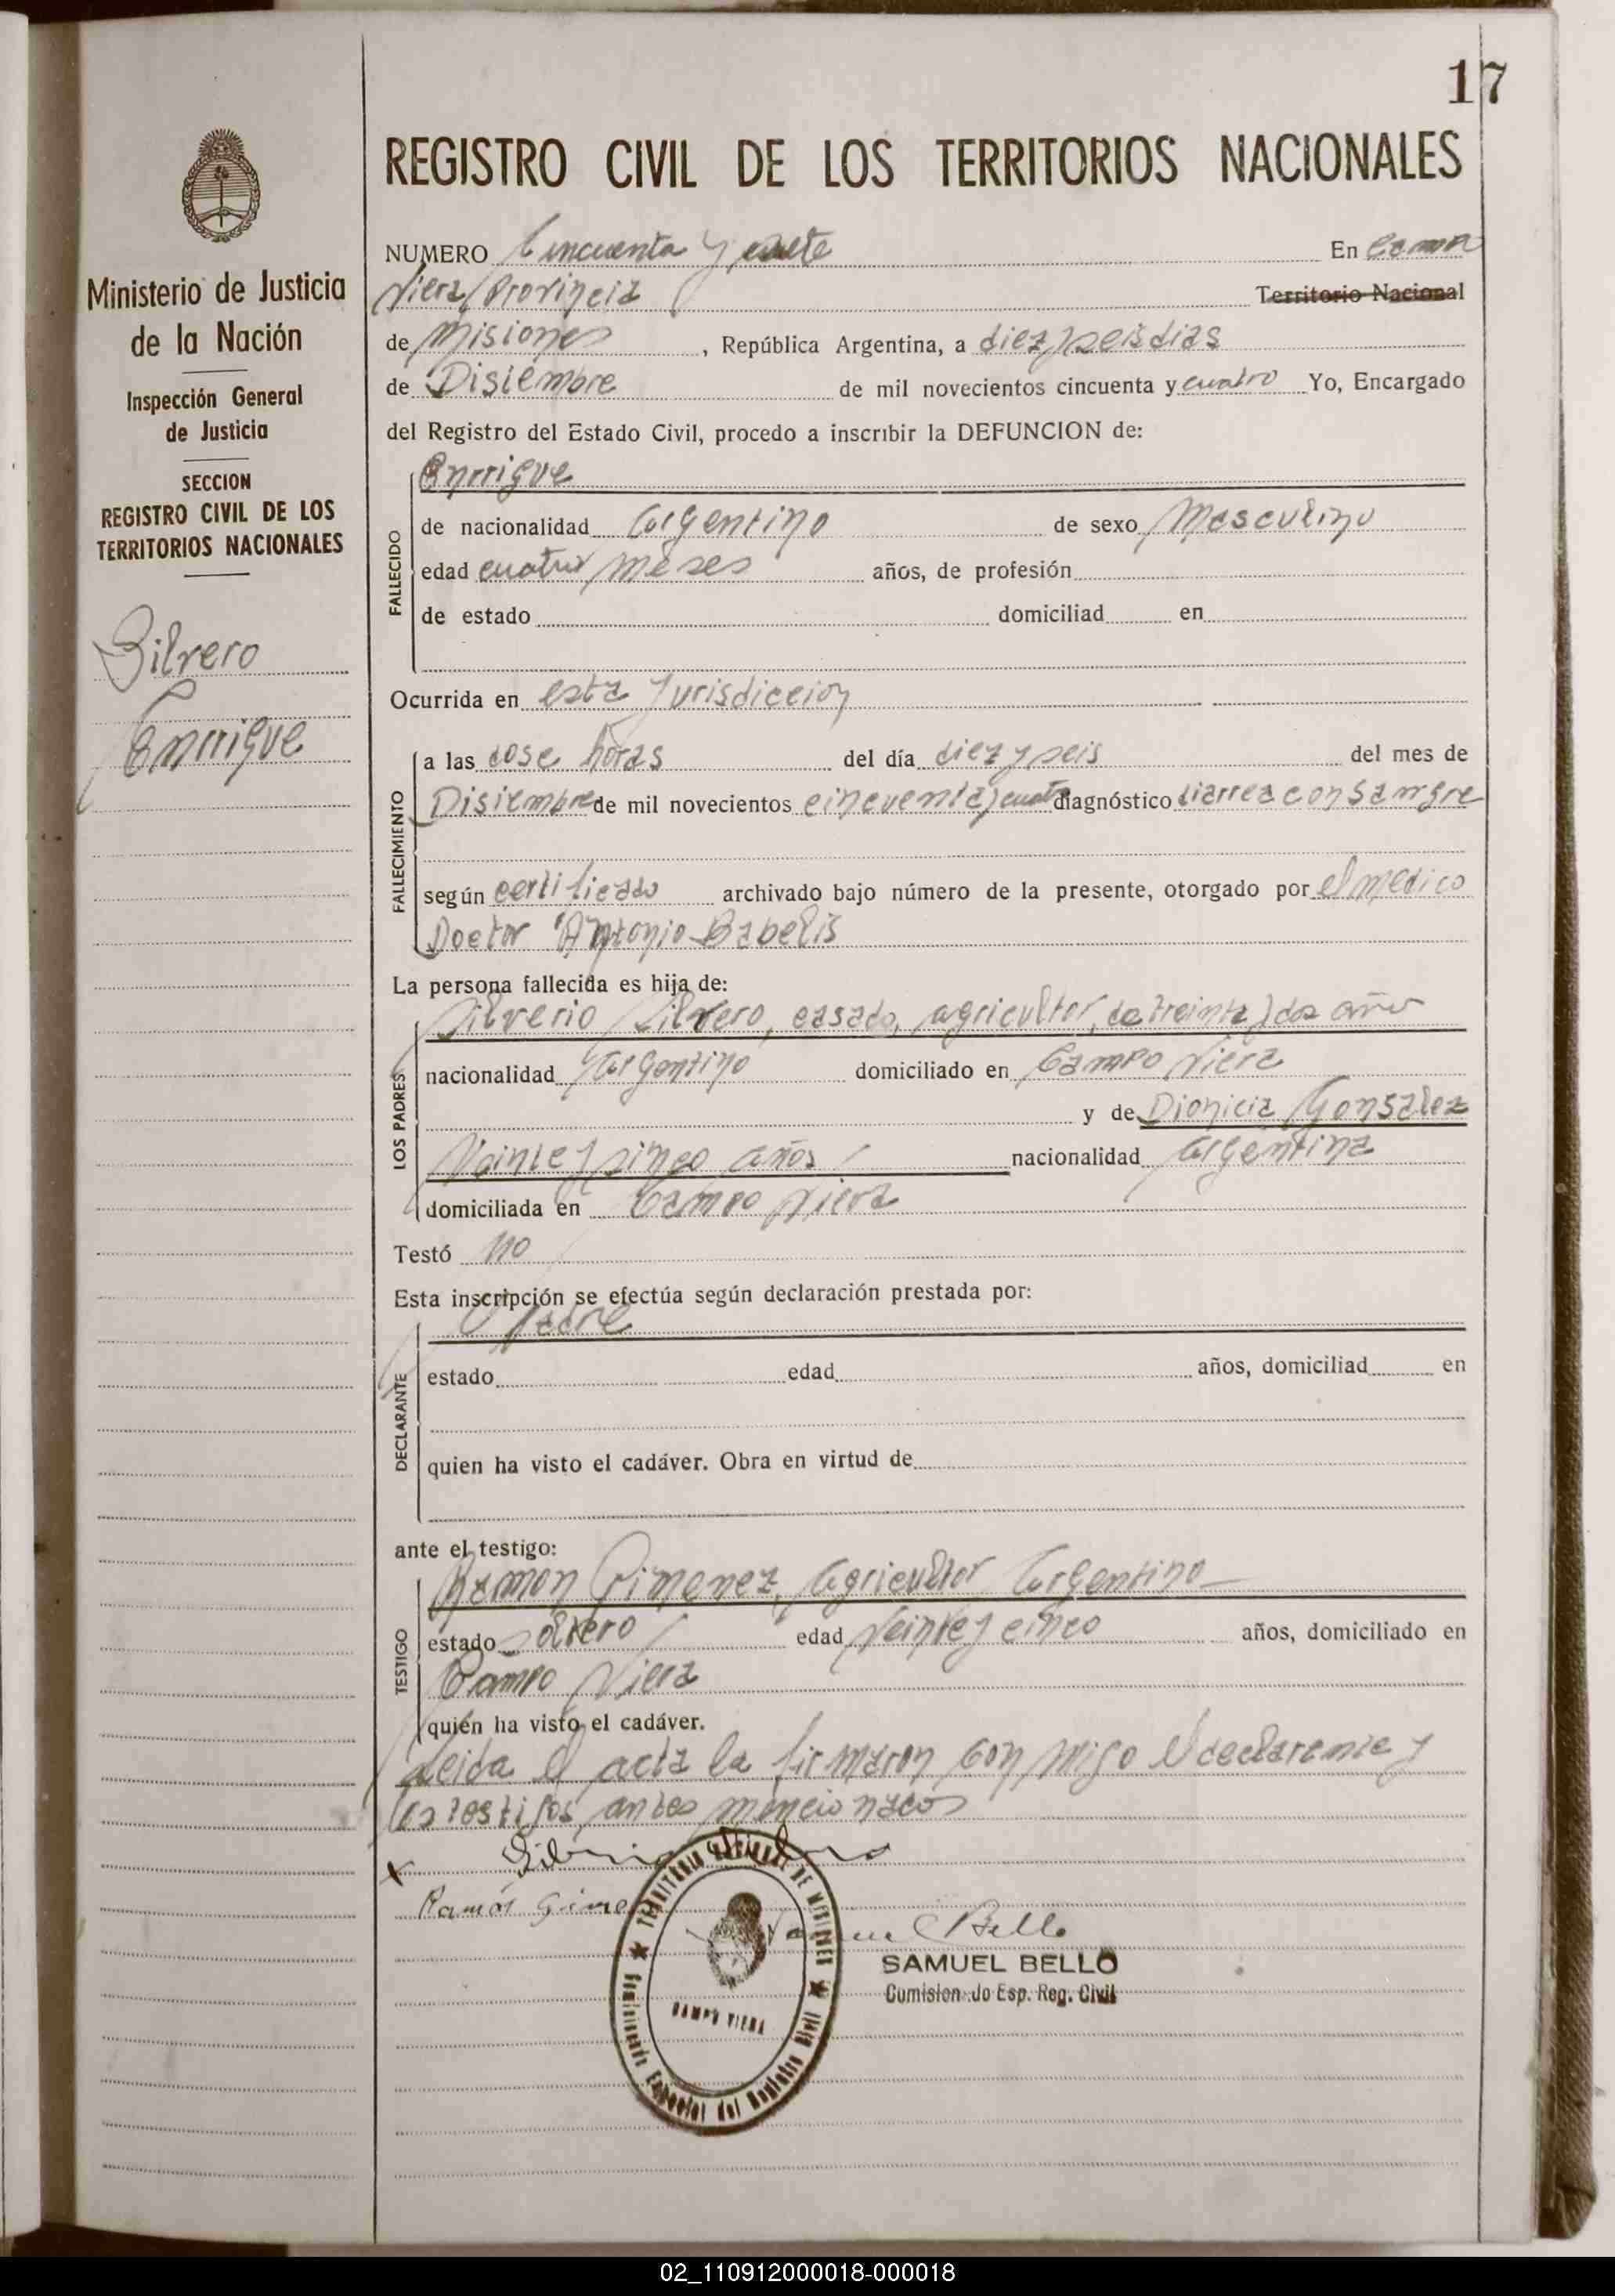 17
REGISTRO CIVIL DE LOS TERRITORIOS NACIONALES
Ministerio de Justicia
de la Nación
Inspección General
de Justicia
SECCION
REGISTRO CIVIL DE LOS
TERRITORIOS NACIONALES
Silvero
Enrrique
NUMERO Cincuenta y En
Viera Provincia Territorio Nacional
de Misiones, República Argentina, a diez y seis dias
de Disiembre de mil novecientos cincuenta y cuatro Yo, Encargado
del Registro del Estado Civil, procedo a inscribir la DEFUNCION de:
Enrrique
FALLECIDO
de nacionalidad Argentino de sexo Masculino
edad cuatro meses años, de profesión
de estado domiciliad en
Ocurrida en esta Jurisdiccion
FALLECIMIENTO
a las dose horas del día diez y seis del mes de
Disiembre de mil novecientos cincuenta y cuatro diagnóstico diarrea con sangre
según certificado archivado bajo número de la presente, otorgado por el medico
Doctor Antonio Babelis
La persona fallecida es hija de:
LOS PADRES
Silverio Silvero, casado, agricultor, de treinta y dos años
nacionalidad Argentino domiciliado en Campo Viera
y de Dionicia Gonsalez
Veinte y sinco años nacionalidad argentina
domiciliada en Campo Viera
Testó no
Esta inscripción se efectúa según declaración prestada por:
DECLARANTE
Padre
estado edad años, domiciliad en
quien ha visto el cadáver. Obra en virtud de
ante el testigo:
TESTIGO
Ramon Gimenez, Agricultor Argentino
estado soltero edad Veinte y cinco años, domiciliado en
Campo Viera
quién ha visto el cadáver.
Leida el acta la firmaron con migo el declarante y
los testigos antes mencionados
x
Ramón Gime
TERRITORIO NACIONAL DE MISIONES
CAMPO VIERA
Comisionado Especial del Registro Civil
Bello
SAMUEL BELLO
Cumision do Esp. Reg. Civil
02_110912000018-000018